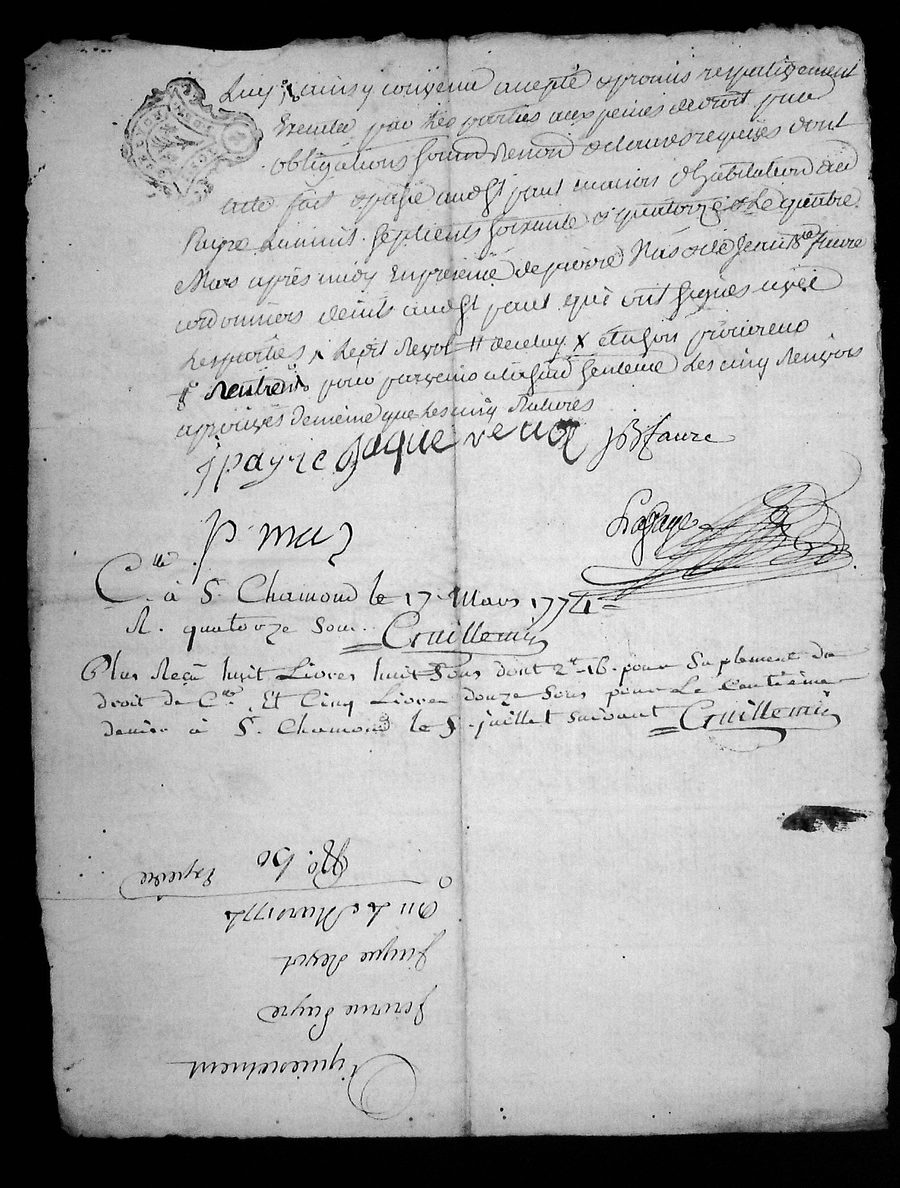 ainsy convenu accepté et promis respectivement
Executer par les parties aux peines de droit par
obligations soumōn Renonōn et clauses requises dont
acte fait et passé audit maison d'habitation du
Payre L'an mil septcents soixante et quatorze & Le quatre
Mars après midy En presence de pierre Mas et de Jean Bte faure
cordonniers audit qui ont signés avec
Les parties
Rentrent pour Les cinq Renvois
aprouvés de meme que Les cinq Ratures
j payre Jaque revot JB faure
p mas Lafaye
Clle. à St. Chamond le 17. Mars 1774
R. quatorze Sous Guillemin
Plus Reçu huit Livres huit Sous dont 2 tt 16. pour Suplement de
droit de Clle. Et Cinq Livres douze Sous pour Le Centieme
denier à St. Chamond le juillet suivant Guillemin
Aquiescement
Jerome Payre
Jaque Revot
Du 4e Mars 1774
Expediée
No. 50